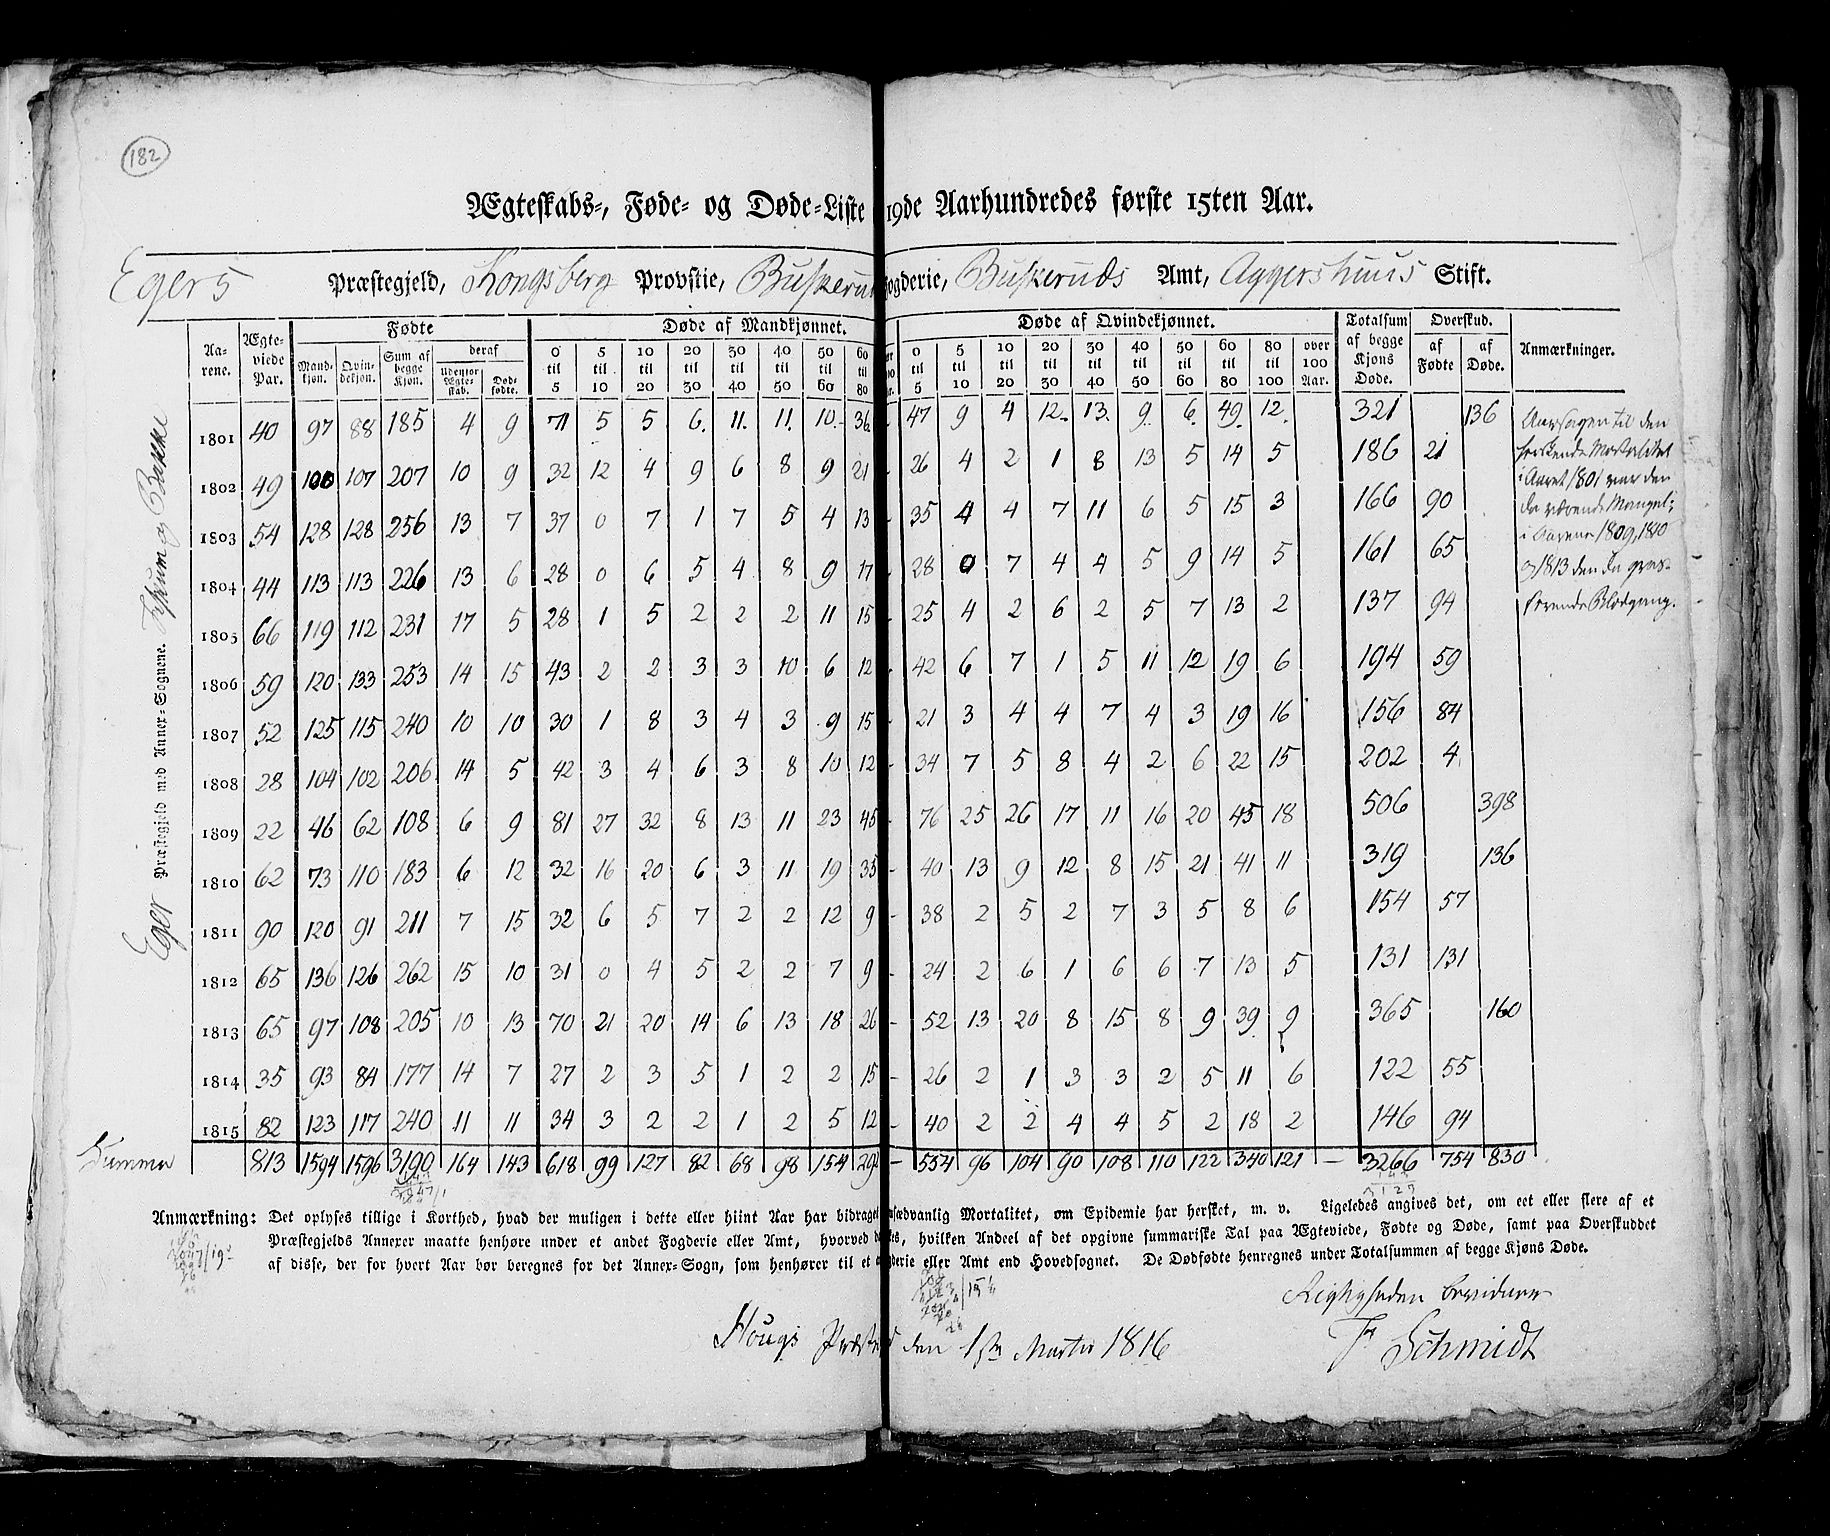 182
Ægteskabs-, Føde- og Døde-Liste 19de Aarhundredes første 15ten Aar.
Egers Præstegjeld, Kongsberg Provstie, Buskerud Fogderie, Buskeruds Amt, Aggershuus Stift.
Eger Præstegjeld med Annex-Sognene. Fiskum og Bakke
Aarene. Ægteviede Par. Fødte Døde af Mandkjønnet. Døde af Qvindekjønnet. Totalsum af begge Kjøns Døde. Overskud. Anmærkninger.
Mandkjøn. Qvindekjøn. Sum af begge Kjøn. deraf udenfor Ægteskab. Dødfødte. af Fødte af Døde.
0 til 5 5 til 10 10 til 20 20 til 30 30 til 40 40 til 50 50 til 60 60 til 80 0 til 5 5 til 10 10 til 20 20 til 30 30 til 40 40 til 50 50 til 60 60 til 80 80 til 100 over 100 Aar.
1801 40 97 88 185 4 9 71 5 5 6 11 11 10 36 - 47 9 4 12 13 9 6 49 12 321 136
1802 49 100 107 207 10 9 32 12 4 9 6 8 9 21 - 26 4 2 1 8 13 5 14 5 186 21
1803 54 128 128 256 13 7 37 0 7 1 7 5 4 13 - 35 4 4 7 11 6 5 15 3 166 90
1804 44 113 113 226 13 6 28 0 6 5 4 8 9 17 - 28 0 7 4 4 5 9 14 5 161 65
1805 66 119 112 231 17 5 28 1 5 2 2 2 11 15 - 25 4 2 6 2 5 7 13 2 137 94
1806 59 120 133 253 14 15 43 2 2 3 3 10 6 12 - 42 6 7 1 5 11 12 19 6 194 59
1807 52 125 115 240 10 10 30 1 8 3 4 3 9 15 - 21 3 4 4 7 4 3 19 16 156 84
1808 28 104 102 206 14 5 42 3 4 6 3 8 10 12 - 34 7 5 8 4 2 6 22 15 202 4
1809 22 46 62 108 6 9 81 27 32 8 13 11 23 45 - 76 25 26 17 11 16 20 45 18 506 398
1810 62 73 110 183 6 12 32 16 20 6 3 11 19 35 - 40 13 9 12 8 15 21 41 11 319 136
1811 90 120 91 211 7 15 32 6 5 7 2 2 12 9 - 38 2 5 2 7 3 5 8 6 154 57
1812 65 136 126 262 15 10 31 0 4 5 2 2 7 9 - 24 2 6 1 6 6 7 13 5 131 131
1813 65 97 108 205 10 13 70 21 20 14 6 13 18 26 - 52 13 20 8 15 8 9 39 9 365 160
1814 35 93 84 177 14 7 27 2 3 5 1 2 2 15 - 26 2 1 3 3 2 5 11 6 122 55
1815 82 123 117 240 11 11 34 3 2 2 1 2 5 12 - 40 2 2 4 4 5 2 18 2 146 94
Summa 813 1594 1596 3190 164 143 618 99 127 82 68 98 154 - 554 96 104 90 108 110 122 340 121 - 3266 754 830
Aarsagen til den
herskende Mortalitet
i Aaret 1801 var den
da værende Mangel;
i Aarene 1809, 1810
og 1813 den da gras-
serende Blodgang.
Anmærkning: Det oplyses tillige i Korthed, hvad der muligen i dette eller hiint Aar har bidraget usædvanlig Mortalitet, om Epidemie har hersket, m. v. Ligeledes angives det, om eet eller flere af et
Præstegjelds Annexer maatte henhøre under et andet Fogderie eller Amt, hvorved hvilken Andeel af det opgivne summariske Tal paa Ægteviede, Fødte og Døde, samt paa Overskuddet
af disse, der for hvert Aar bør beregnes for det Annex-Sogn, som henhører til et eller Amt end Hovedsognet. De Dødfødte henregnes under Totalsummen af begge Kjøns Døde.
Rigtigheden bevidner
Hougs den 1ste Martii 1816
Fr Schmidt